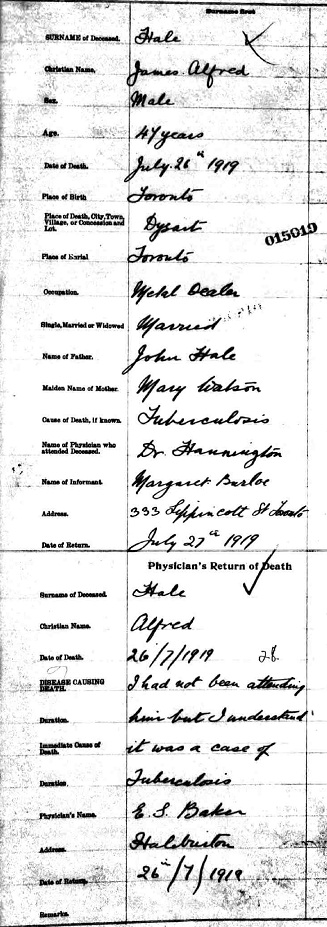 Surname first
SURNAME of Deceased. Hale
Christian Name, James Alfred
Sex. Male
Age. 47 years
Date of Death. July 26th 1919
Place of Birth Toronto
Place of Death, City, Town, Village, or Concession and Lot. Dysart
015019
Place of Burial Toronto
Occupation. Metal Dealer
Single, Married or Widowed Married
Name of Father. John Hale
Maiden Name of Mother. Mary Watson
Cause of Death, if known. Tuberculosis
Name of Physician who attended Deceased. Dr. Hannington
Name of Informant. Margaret Burloe
Address. 333 Lippincott St Toronto
Date of Return. July 27th 1919
Physician's Return of Death
Surname of Deceased. Hale
Christian Name. Alfred
Date of Death. 26/7/1919 28.
DISEASE CAUSING DEATH. I had not been attending
Duration. him but I understand
Immediate Cause of Death. it was a case of
Duration. Tuberculosis
Physician's Name. E. S. Baker
Address. Haliburton
Date of Return. 26th/7/1919
Remarks.